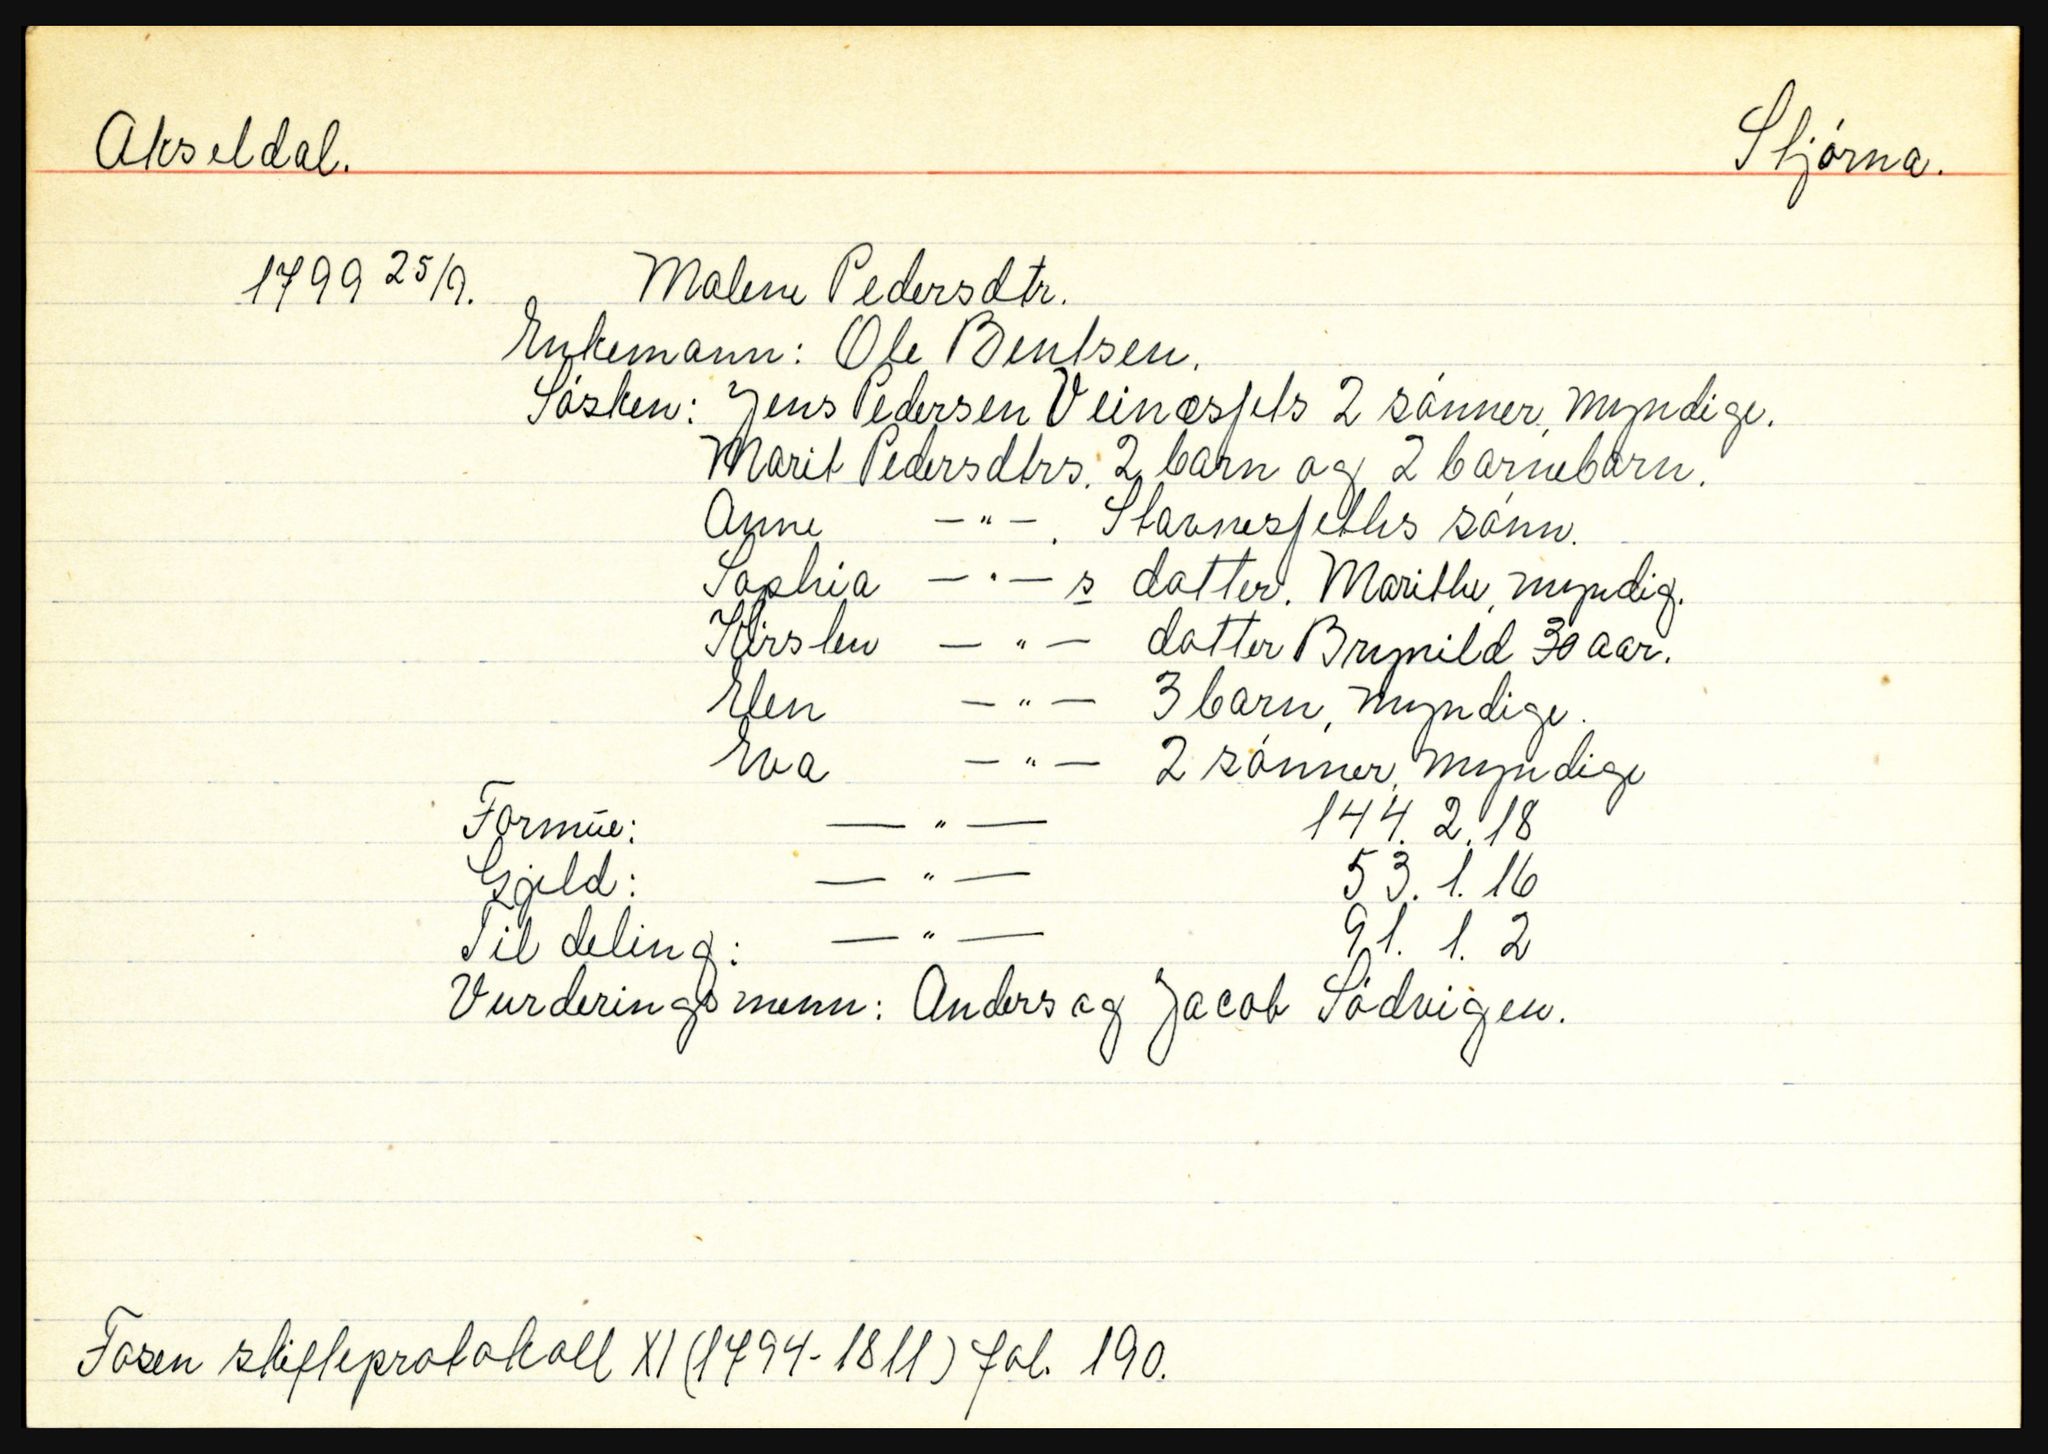 Akseldal. Stjørna.
1799 25/9. Malene Pedersdtr.
Enkemann: Ole Bentsen.
Søsken: Jens Pedersen Veinæsfets 2 sønner, myndige.
Marit Pedersdtrs. 2 barn og 2 barnebarn.
Anne — " — . Stavnesfetks sønn.
Sophia — " — s datter. Marithe, myndig.
Kirsten — " — datter Brynild 30 aar.
Elen — " — 3 barn, myndige.
Eva — " — 2 sønner, myndige
Formue: — " — 144. 2. 18
Gjeld: — " — 53. 1. 16
Til deling: — " — 91. 1. 2
Vurderingsmenn: Anders og Jacob Sødvigen.
Fosen skifteprotokoll XI (1794-1811) fol. 190.